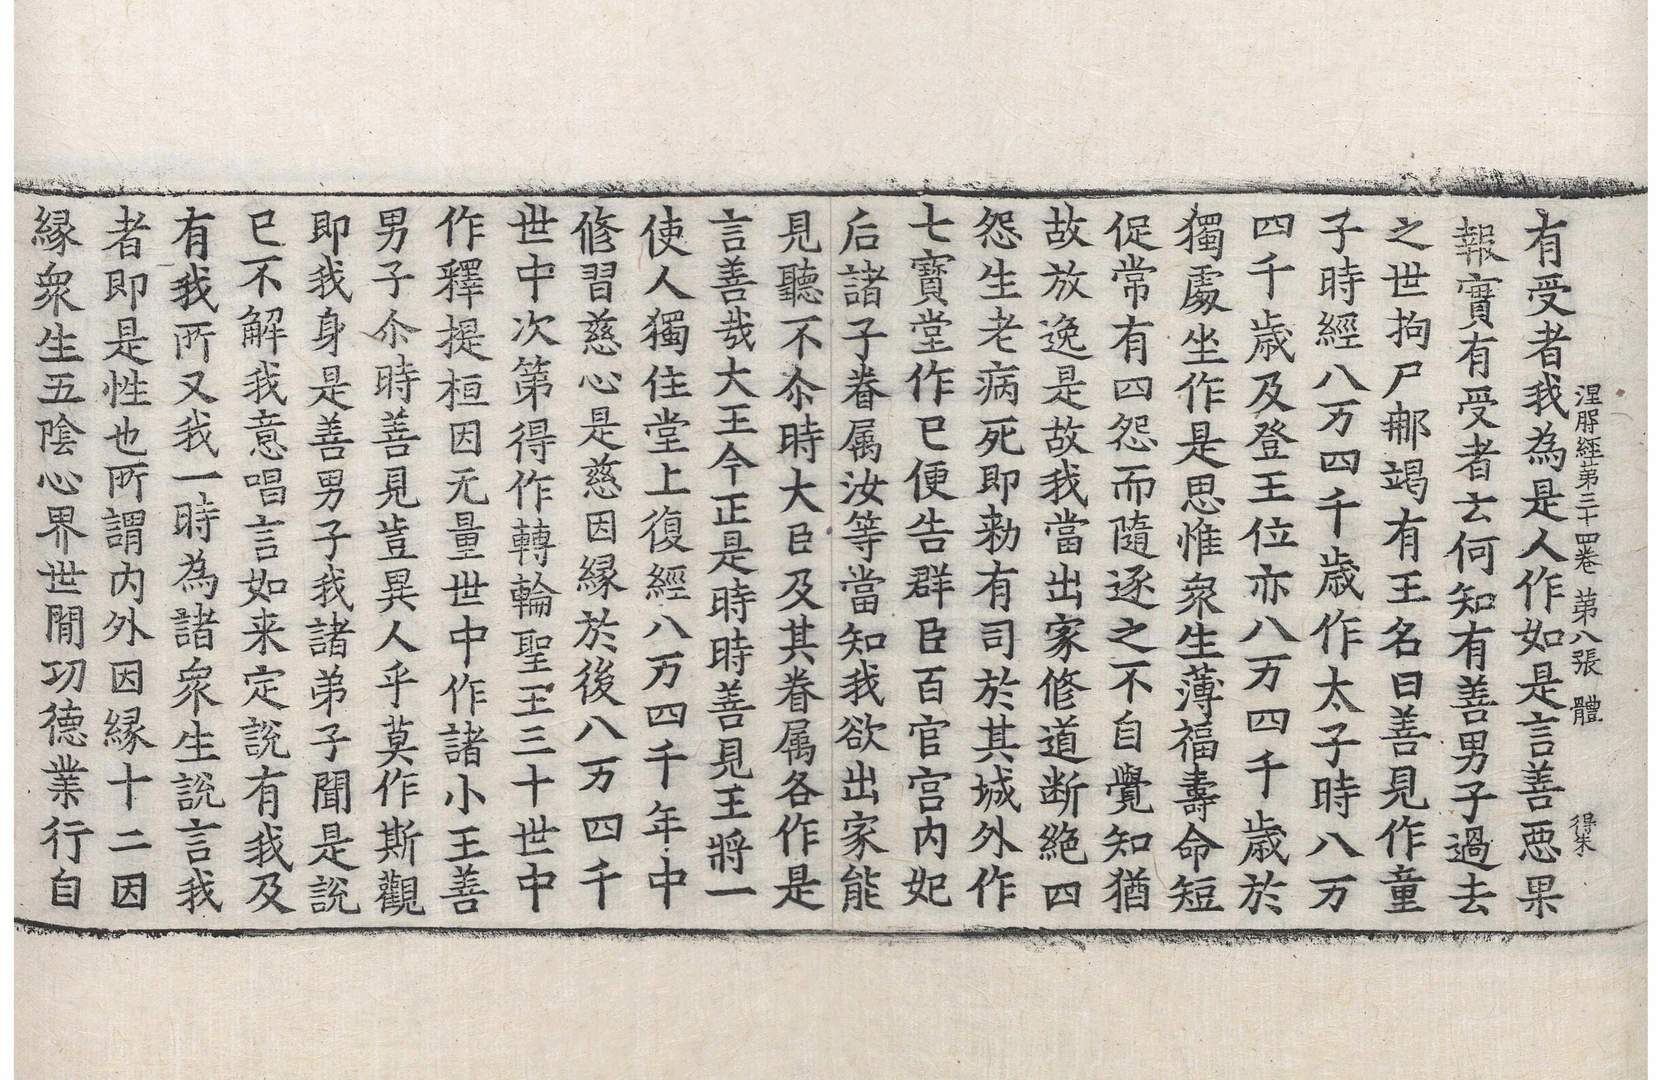 涅槃經第三十四卷 第八張 體 得朱
有受者我為是人作如是言善惡果
報實有受者云何知有善男子過去
之世拘尸那竭有王名曰善見作童
子時經八万四千歲作太子時八万
四千歲及登王位亦八万四千歲於
獨處坐作是思惟衆生薄福壽命短
促常有四怨而隨逐之不自覺知猶
故放逸是故我當出家修道断絶四
怨生老病死即勑有司於其城外作
七寶堂作已便告群臣百官宮内妃
后諸子眷属汝等當知我欲出家能
見聽不尒時大臣及其眷属各作是
言善哉大王今正是時時善見王將一
使人獨住堂上復經八万四千年中
修習慈心是慈因縁於後八万四千
世中次第得作轉輪聖王三十世中
作釋提桓因无量世中作諸小王善
男子尒時善見豈異人乎莫作斯觀
即我身是善男子我諸弟子聞是說
已不解我意唱言如来定說有我及
有我所又我一時為諸衆生說言我
者即是性也所謂内外因縁十二因
縁衆生五陰心界世閒功德業行自